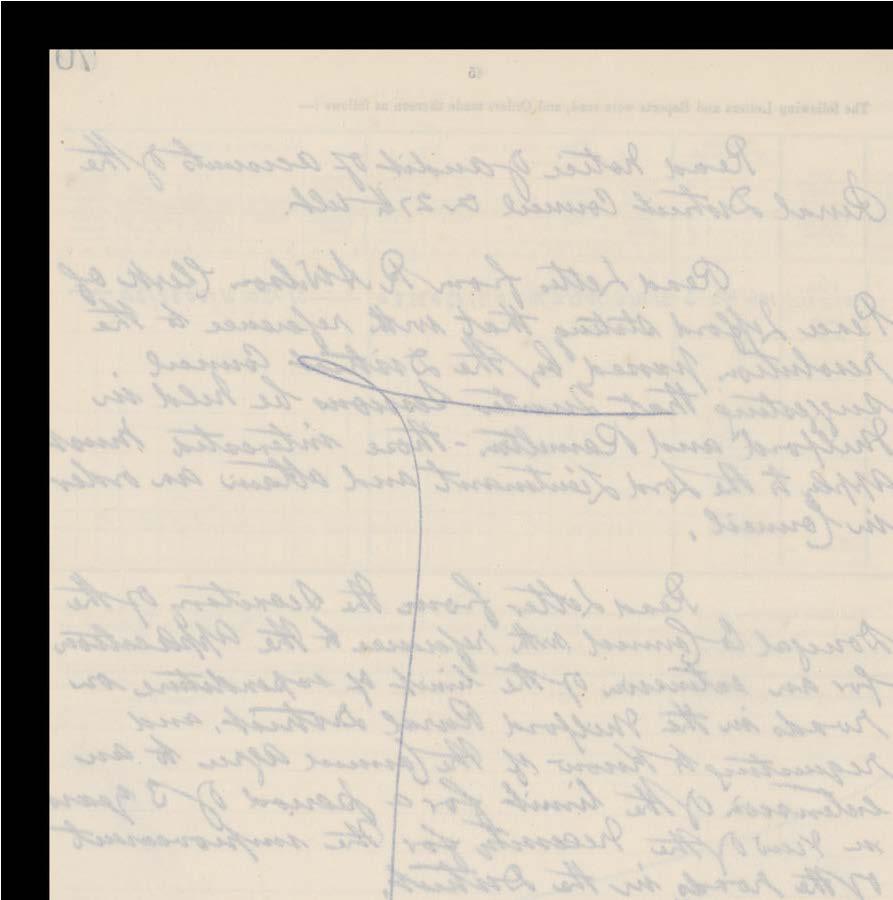 The following Letters and Reports were read, and Orders made thereon as follows:—
Read Notice of audit of accounts of the
Rural District Council on 27th
Read Letter from R. A. Wilson Clerk of
Peace Lifford stating that with reference to the
resolution passed by the District Council
suggesting that Quarter Sessions be held in
Milford and Ramelton - those interested must
apply to the Lord Lieutenant and obtain an order
in Council.
Read Letter from the Secretary of the
Donegal Co Council with reference to the application
for an extension of the limit of expenditure on
roads in the Milford Rural District, and
requesting to know if the Council agree to an
extension of the limit for a period of 3 years
in view of the necessity for the improvement
of the roads in the District.